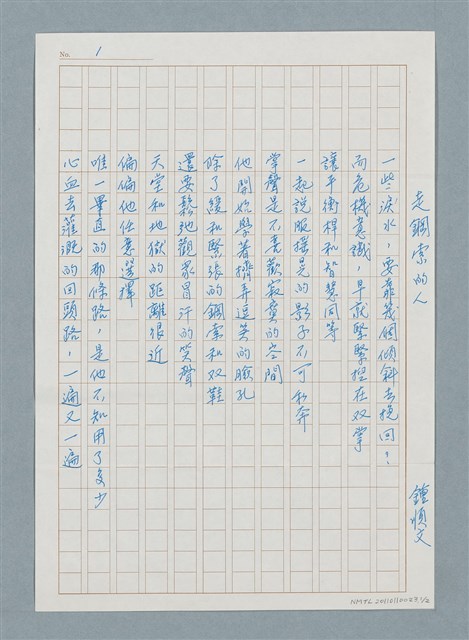 No. 1
走鋼索的人
鍾順文
一些淚水，要靠幾個傾斜去挽回？
而危機意識，早就緊緊握在双掌
讓平衡桿和智慧同等
一起說服搖晃的影子不可私奔
掌聲是不喜歡寂寞的空間
他開始學著擠弄逗笑的臉孔
除了緩和緊張的鋼索和双鞋
還要鬆弛觀眾冒汗的笑聲
天堂和地獄的距離很近
偏偏他任意選擇
唯一筆直的那條路，是他不知用了多少
心血去灌溉的回頭路，一遍又一遍
NMTL 20110110023 1/2